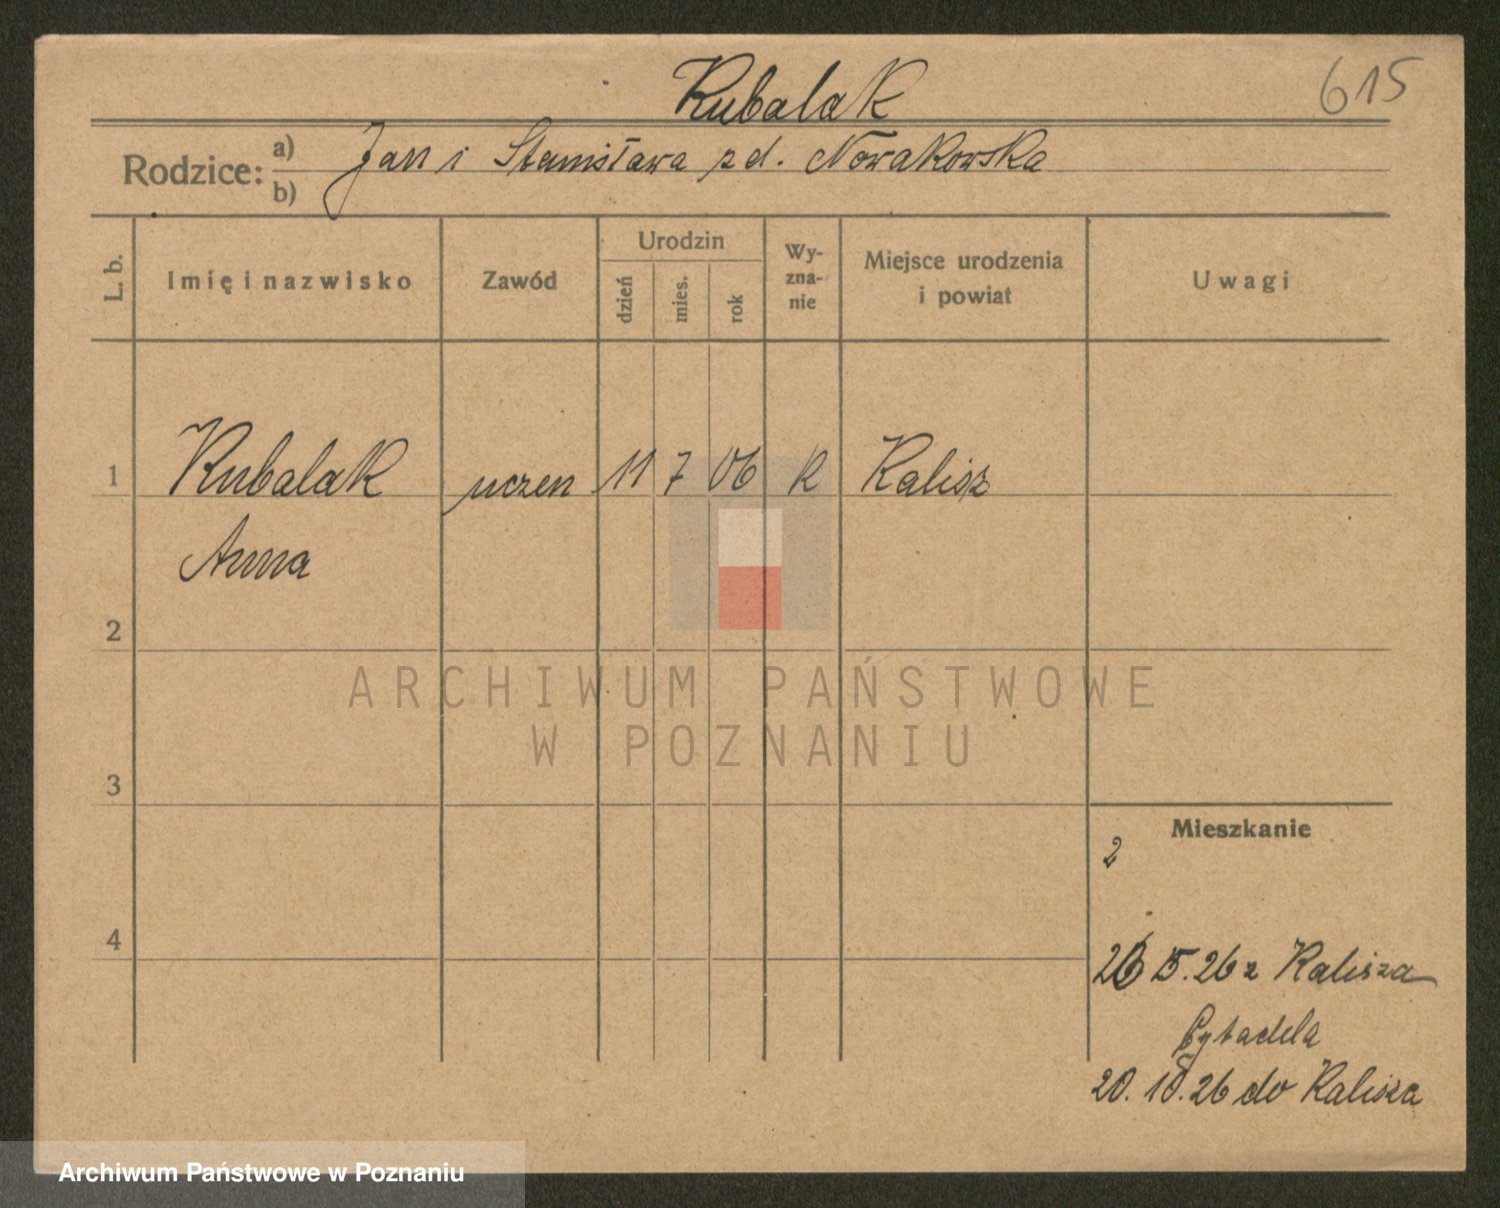 Kubalak
615
Rodzice: a) Jan i Stanisława z d. Nowakowska
b)
L. b.
Imię i nazwisko
Zawód
Urodzin
dzień
mies.
rok
Wy-
zna-
nie
Miejsce urodzenia
i powiat
Uwagi
1 Kubalak uczen 11 7 06 R Kalisz
Anna
2
3
4
ARCHIWUM PAŃSTWOWE
W POZNANIU
Mieszkanie
2
26 5.26 z Kalisza
Cytadela
20. 10. 26 do Kalisza
Archiwum Państwowe w Poznaniu